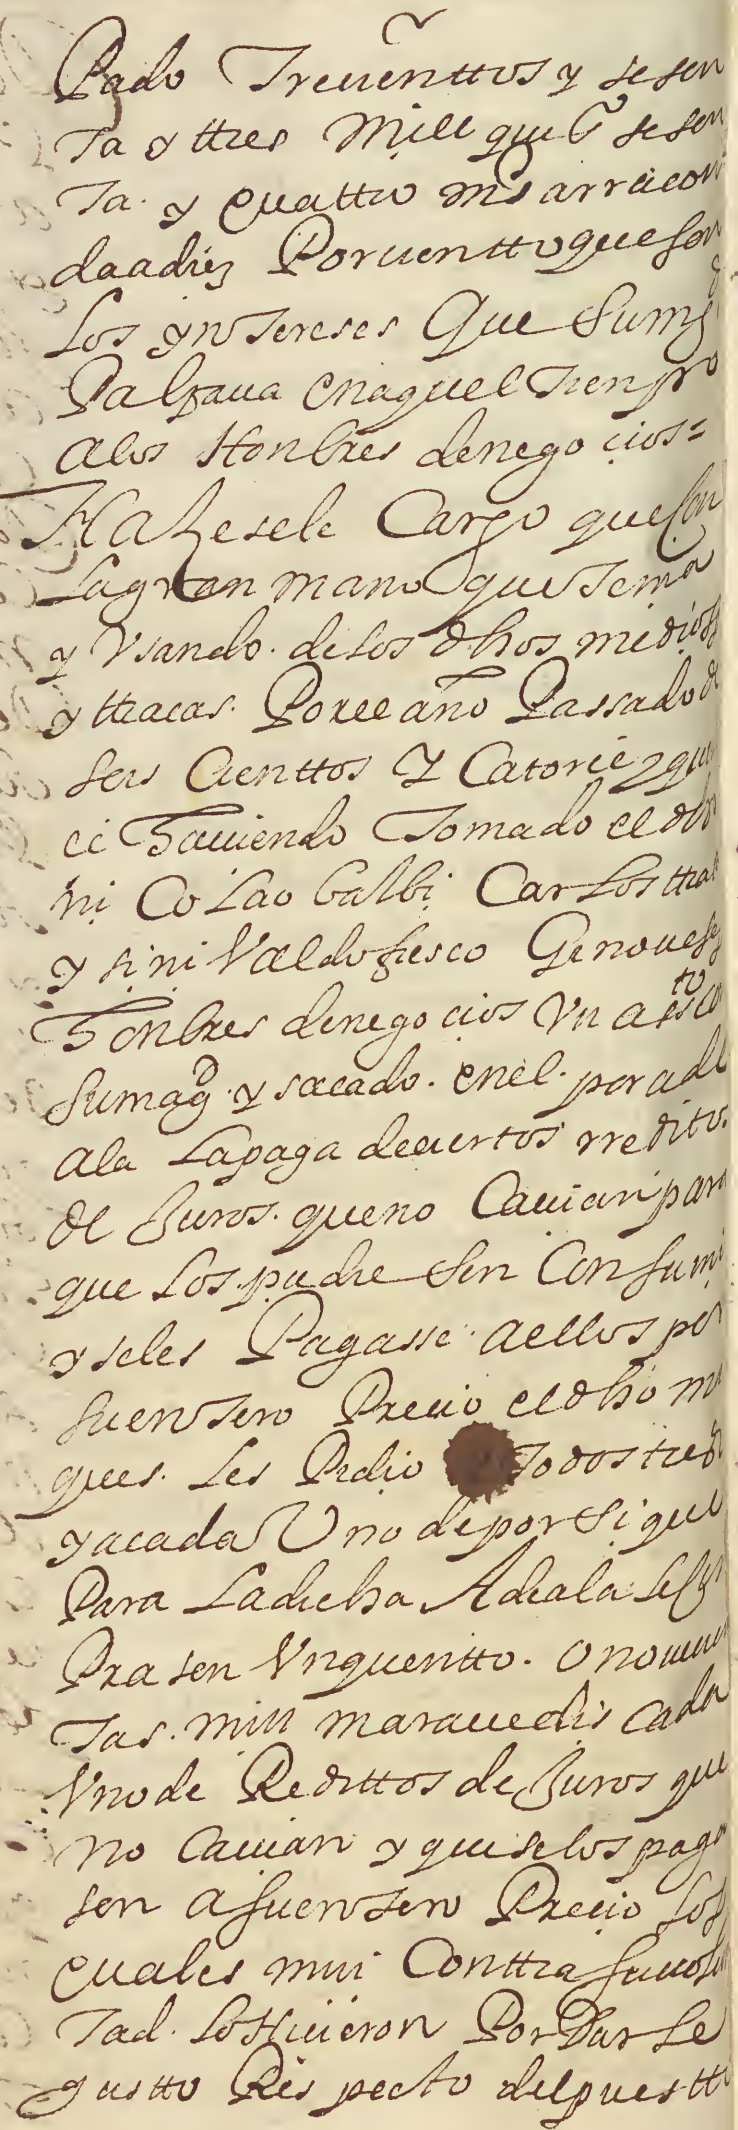 Pado Trecienttos y sesen
Ta y ttres Mill qui<sup>os</sup> sesen
Ta. y quattro mrs a rracon
da a diez Porcientto que son
Los ynTereses Que Su mg<sup>d</sup>
Pagaua en aquel Tienpo
alos Honbres denegocios=
Hazesele Cargo que con
La gran mano que Tenia
y Vsando. delos dhos medios
y ttracas. Porel año Passado de
seis Cienttos Y Catorce y quin
ce hauiendo Tomado el dho
niColao balbi Carlos ttra
y sini Valdo fiesco Ginoueses
Honbres denegocios Vn as<sup>to</sup> co
Su mag<sup>d</sup>. y sacado. en el. por ade
ala La paga deciertos rreditos
de Juros. que no Cauian para
que Los pudiesen Consumi
y seles Pagasse. a ellos por
su enTero Precio el dho m
ques. Les Pidio Todos tres
y acada Uno de por si que
Para La dicha Adeala le con
Prasen Vn quentto. o nouecien
Tas. mill marauedis cada
Vno de Redittos de Juros que
no Cauian y que selos paga
sen a su enTero Precio los
quales mui Conttra su uolun
Tad. Lo Hicieron Por Dar Le
gustto Res pecto del puestto